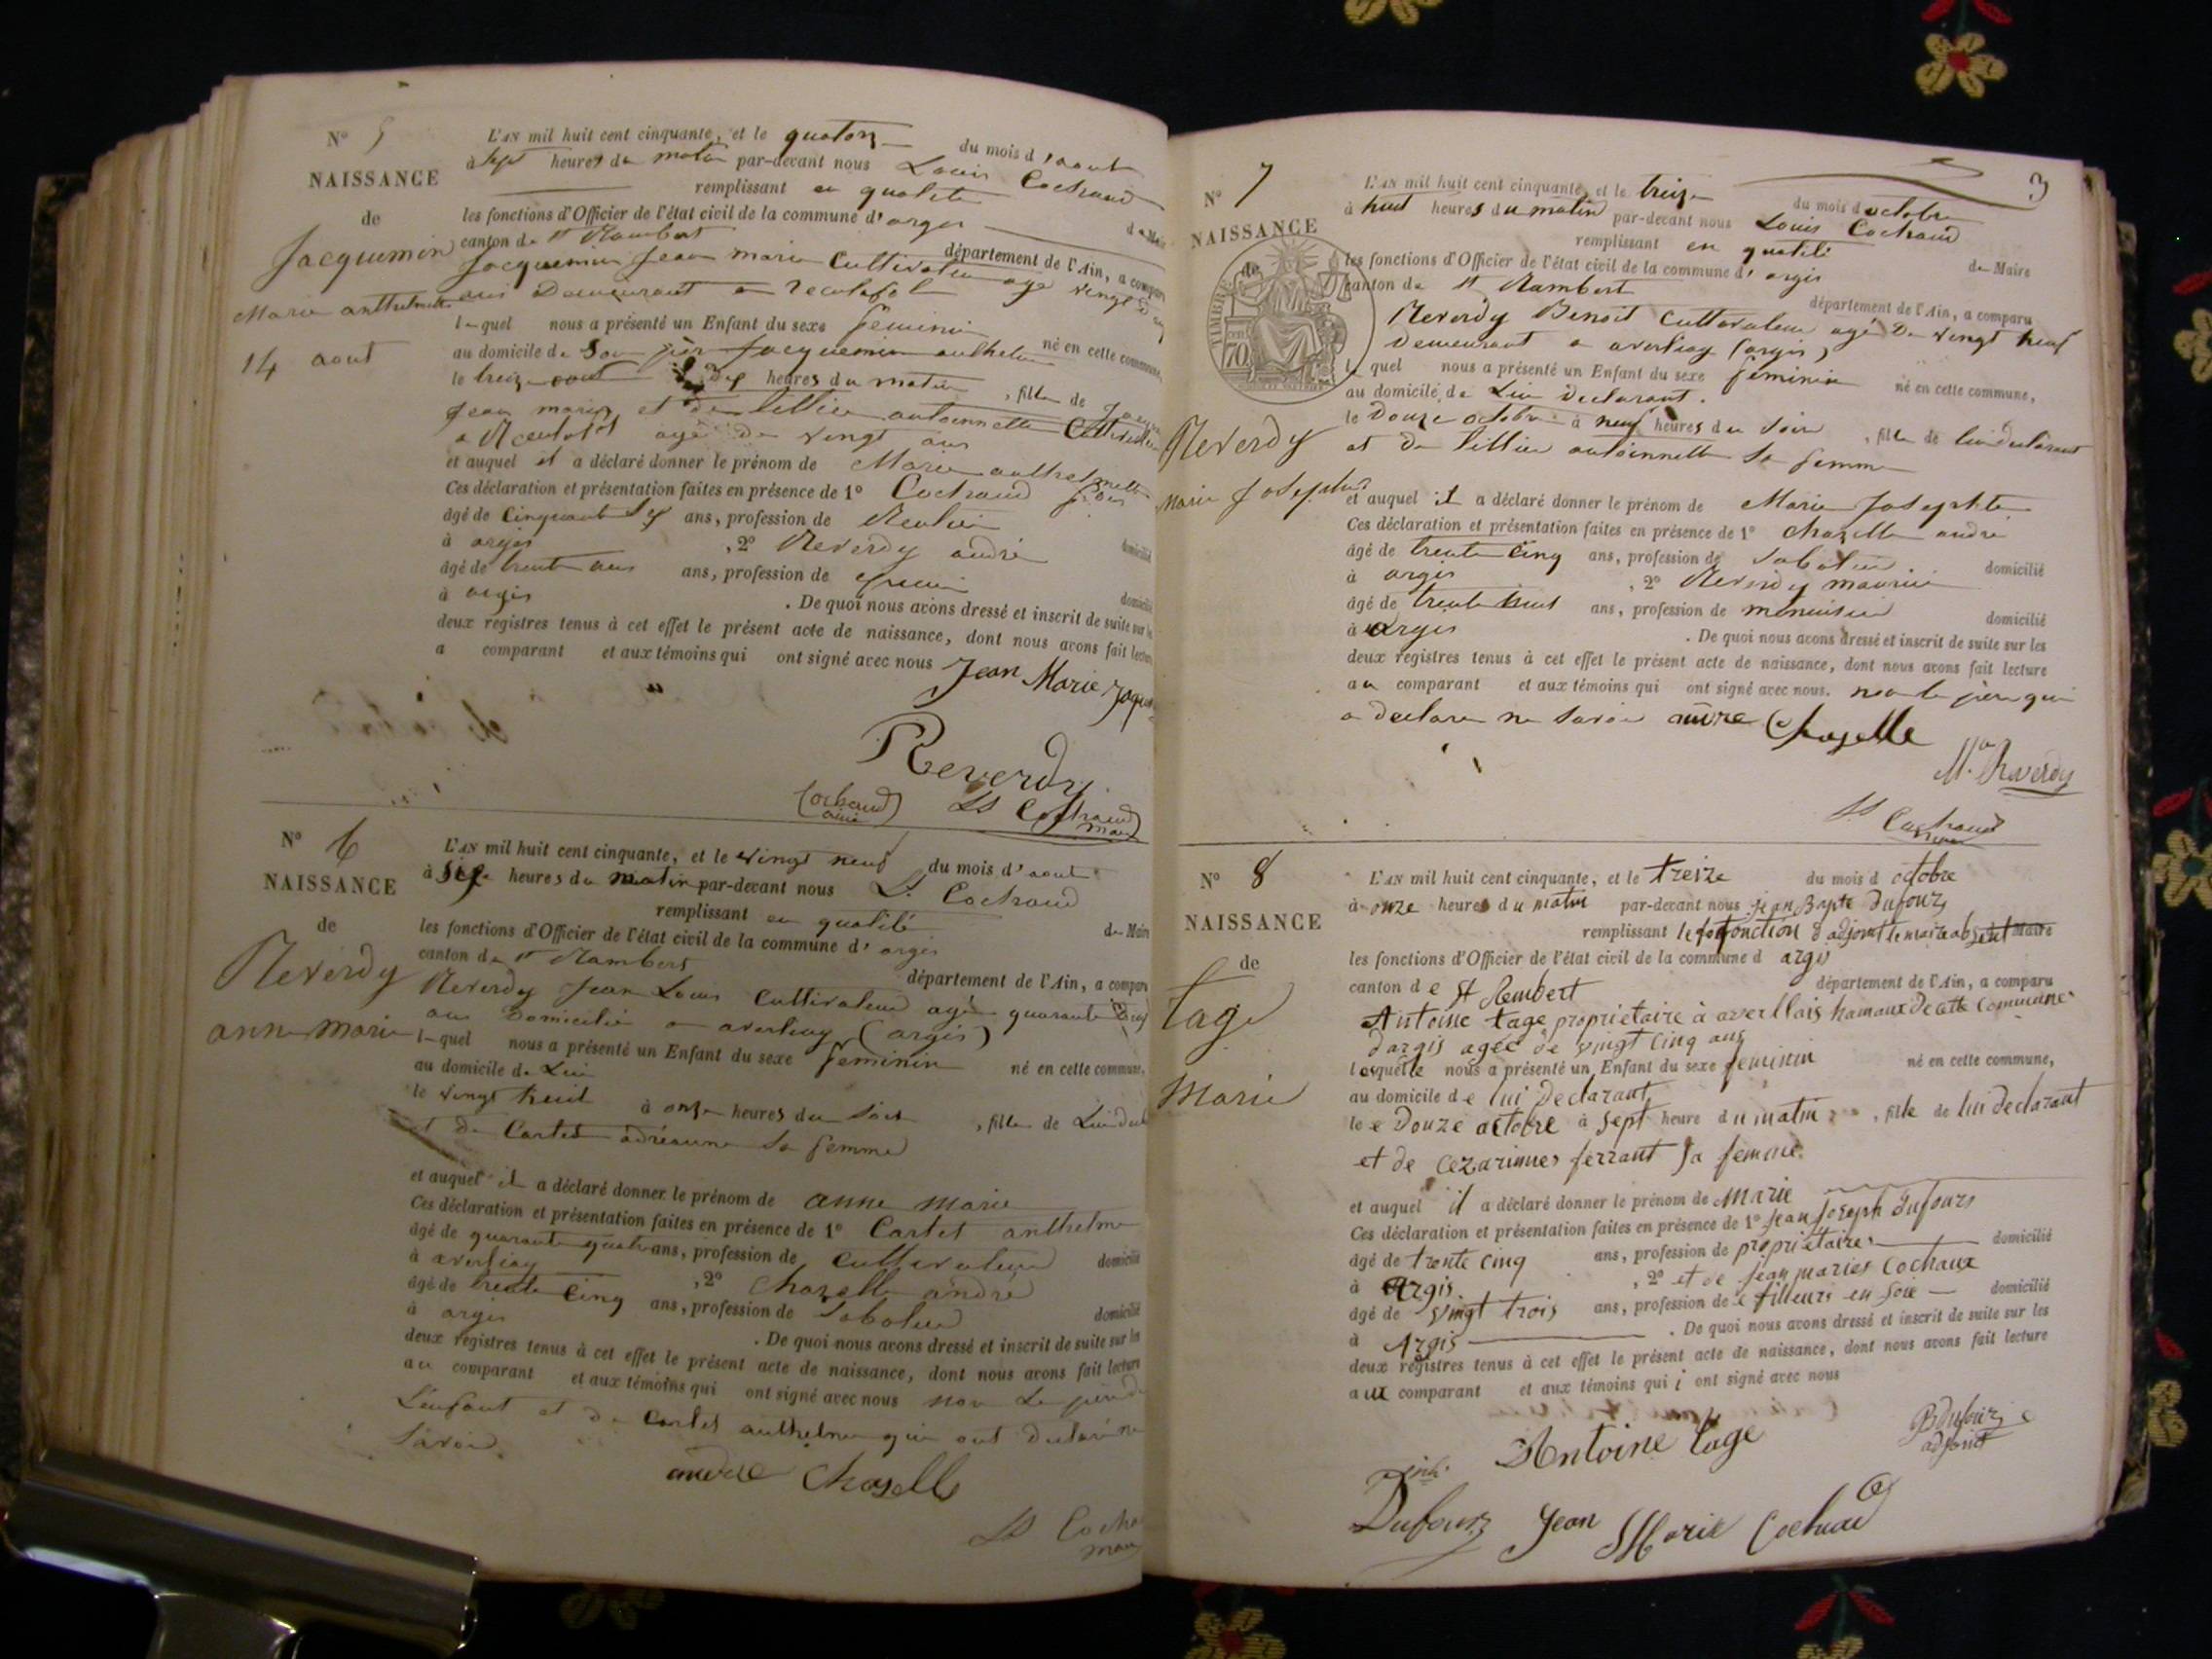 N° 5
NAISSANCE
de
Jacquemin
Marie anthelmette
14 aout
L'AN mil huit cent cinquante, et le quatorze du mois d'aout
à sept heures du matin par-devant nous Louis Cochaud
remplissant en qualité de Maire
les fonctions d'Officier de l'état civil de la commune d'argis
canton de St Rambert département de l'Ain, a comparu
Jacquemin Jean marie Cultivateur age vingt
ans Demeurant a
lequel nous a présenté un Enfant du sexe feminin né en cette commune,
au domicile de Son père Jacquemin anthelme
le treize aout à heures du matin , fille de
Jean marie et de tellier antoinette
a agé de vingt ans
et auquel il a déclaré donner le prénom de Marie anthelmette
Ces déclaration et présentation faites en présence de 1° Cochaud
âgé de Cinquante ans, profession de Rentier domicilié
à argis , 2° Reverdy andré
âgé de trente ans ans, profession de domicilié
à argis . De quoi nous avons dressé et inscrit de suite sur les
deux registres tenus à cet effet le présent acte de naissance, dont nous avons fait lecture
a comparant et aux témoins qui ont signé avec nous Jean Marie
Reverdy
Cochaud ainé Ls Cochaud maire
N° 6
NAISSANCE
de
Reverdy
anne marie
L'AN mil huit cent cinquante, et le vingt neuf du mois d'aout
à six heures du matin par-devant nous Ls Cochaud
remplissant en qualité de Maire
les fonctions d'Officier de l'état civil de la commune d'argis
canton de St Rambert département de l'Ain, a comparu
Reverdy Jean Louis Cultivateur agé quarante
ans Domicilié a averliay (argis)
lequel nous a présenté un Enfant du sexe feminin né en cette commune,
au domicile de Lui
le vingt huit à onze heures du soir , fille de Lui
et de Cartet sa femme
et auquel il a déclaré donner le prénom de anne marie
Ces déclaration et présentation faites en présence de 1° Cartet anthelme
âgé de quarante quatre ans, profession de cultivateur domicilié
à averliay , 2° Chazelle andré
âgé de trente cinq ans, profession de Sabotier domicilié
à argis . De quoi nous avons dressé et inscrit de suite sur les
deux registres tenus à cet effet le présent acte de naissance, dont nous avons fait lecture
au comparant et aux témoins qui ont signé avec nous non le père de
L'enfant et de Cartet anthelme qui ont declaré ne
Savoir
andré Chazelle
Ls
N° 7
3
NAISSANCE
de
TIMBRE
70
Reverdy
Marie Josephte
L'AN mil huit cent cinquante, et le treize du mois d octobre
à huit heures du matin par-devant nous Louis Cochaud
remplissant en qualité de Maire
les fonctions d'Officier de l'état civil de la commune d' argis
canton de St Rambert département de l'Ain, a comparu
Reverdy Benoit Cultivateur agé de vingt neuf
Demeurant a averliay (argis)
lequel nous a présenté un Enfant du sexe feminin né en cette commune,
au domicile de Lui declarant.
le Douze octobre à neuf heures du Soir , fille de lui declarant
et de tellier antoinette Sa femme
et auquel il a déclaré donner le prénom de Marie Josephte
Ces déclaration et présentation faites en présence de 1° chazelle andré
âgé de trente cinq ans, profession de Sabotier domicilié
à argis , 2° Reverdy maurice
âgé de trente huit ans, profession de menuisier domicilié
à argis . De quoi nous avons dressé et inscrit de suite sur les
deux registres tenus à cet effet le présent acte de naissance, dont nous avons fait lecture
au comparant et aux témoins qui ont signé avec nous. non le père qui
a declare ne Savoir andre Chazelle
Mce Reverdy
Ls Cochaud maire
N° 8
NAISSANCE
de
tage
Marie
L'AN mil huit cent cinquante, et le treize du mois d octobre
à onze heures du matin par-devant nous jean Bapte Dufour
remplissant le fonction d'adjoint le maire absent Maire
les fonctions d'Officier de l'état civil de la commune d argis
canton de St Rembert département de l'Ain, a comparu
Antoine tage propriétaire à averllais hamaux de cette commune
d'argis agée de vingt cinq ans
lesquelle nous a présenté un Enfant du sexe feminin né en cette commune,
au domicile de lui Declarant
le Douze octobre à sept heure du matin , fille de lui declarant
et de cezarinnes ferrant Sa femme.
et auquel il a déclaré donner le prénom de Marie
Ces déclaration et présentation faites en présence de 1° jean joseph Dufours
âgé de trente cinq ans, profession de propriétaires domicilié
à Argis. , 2° et de jean maries Cochaux
âgé de vingt trois ans, profession de filleurs en soie domicilié
à Argis . De quoi nous avons dressé et inscrit de suite sur les
deux registres tenus à cet effet le présent acte de naissance, dont nous avons fait lecture
aux comparant et aux témoins qui ont signé avec nous
Antoine tage
Bdufour
adjoint
Dufour Jean Marie Cochaud